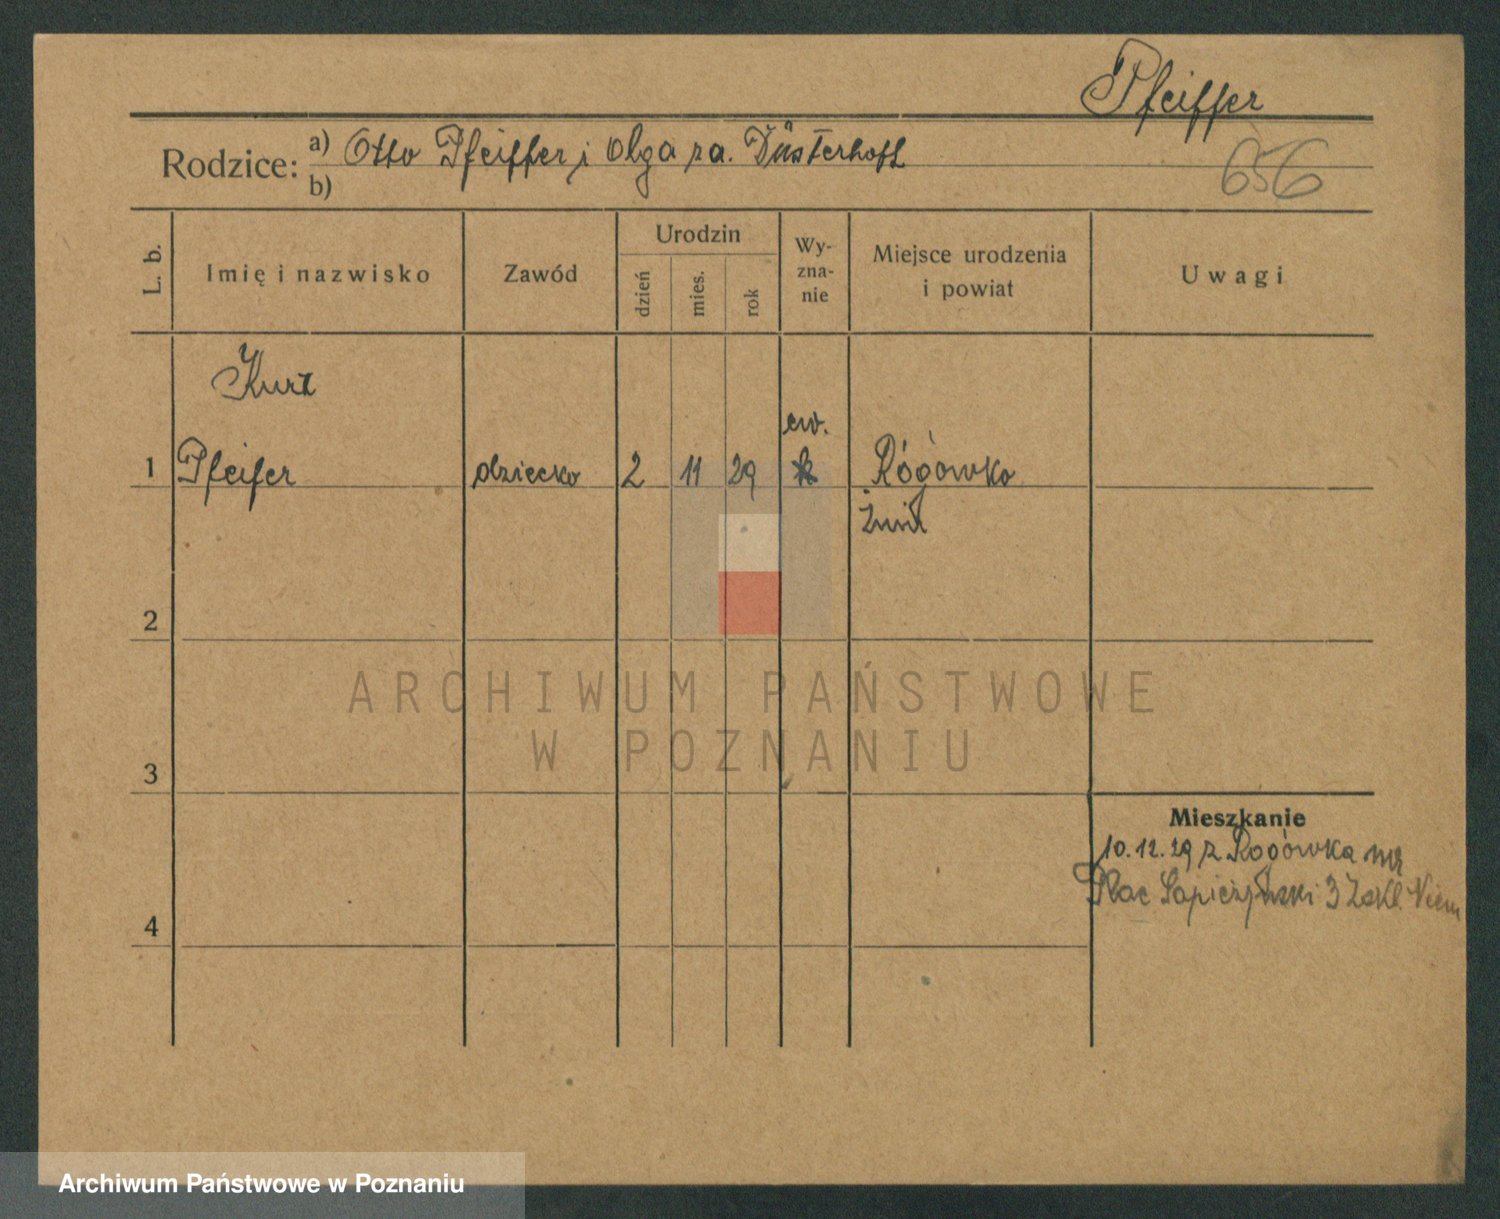 Pfeiffer
Rodzice: a) Otto Pfeiffer i Olga za. Düsterhoft
b)
656
L. b.
Imię i nazwisko
Zawód
Urodzin
dzień
mies.
rok
Wy-
zna-
nie
Miejsce urodzenia
i powiat
Uwagi
Kurt
ew.
1 Pfeifer dziecko 2 11 29 k Rógówko
Żnin
2
3
4
ARCHIWUM PAŃSTWOWE
W POZNANIU
Mieszkanie
10.12.29 z Rogówka
Plac Sapieżyński 3 Zakł. Niem
Archiwum Państwowe w Poznaniu